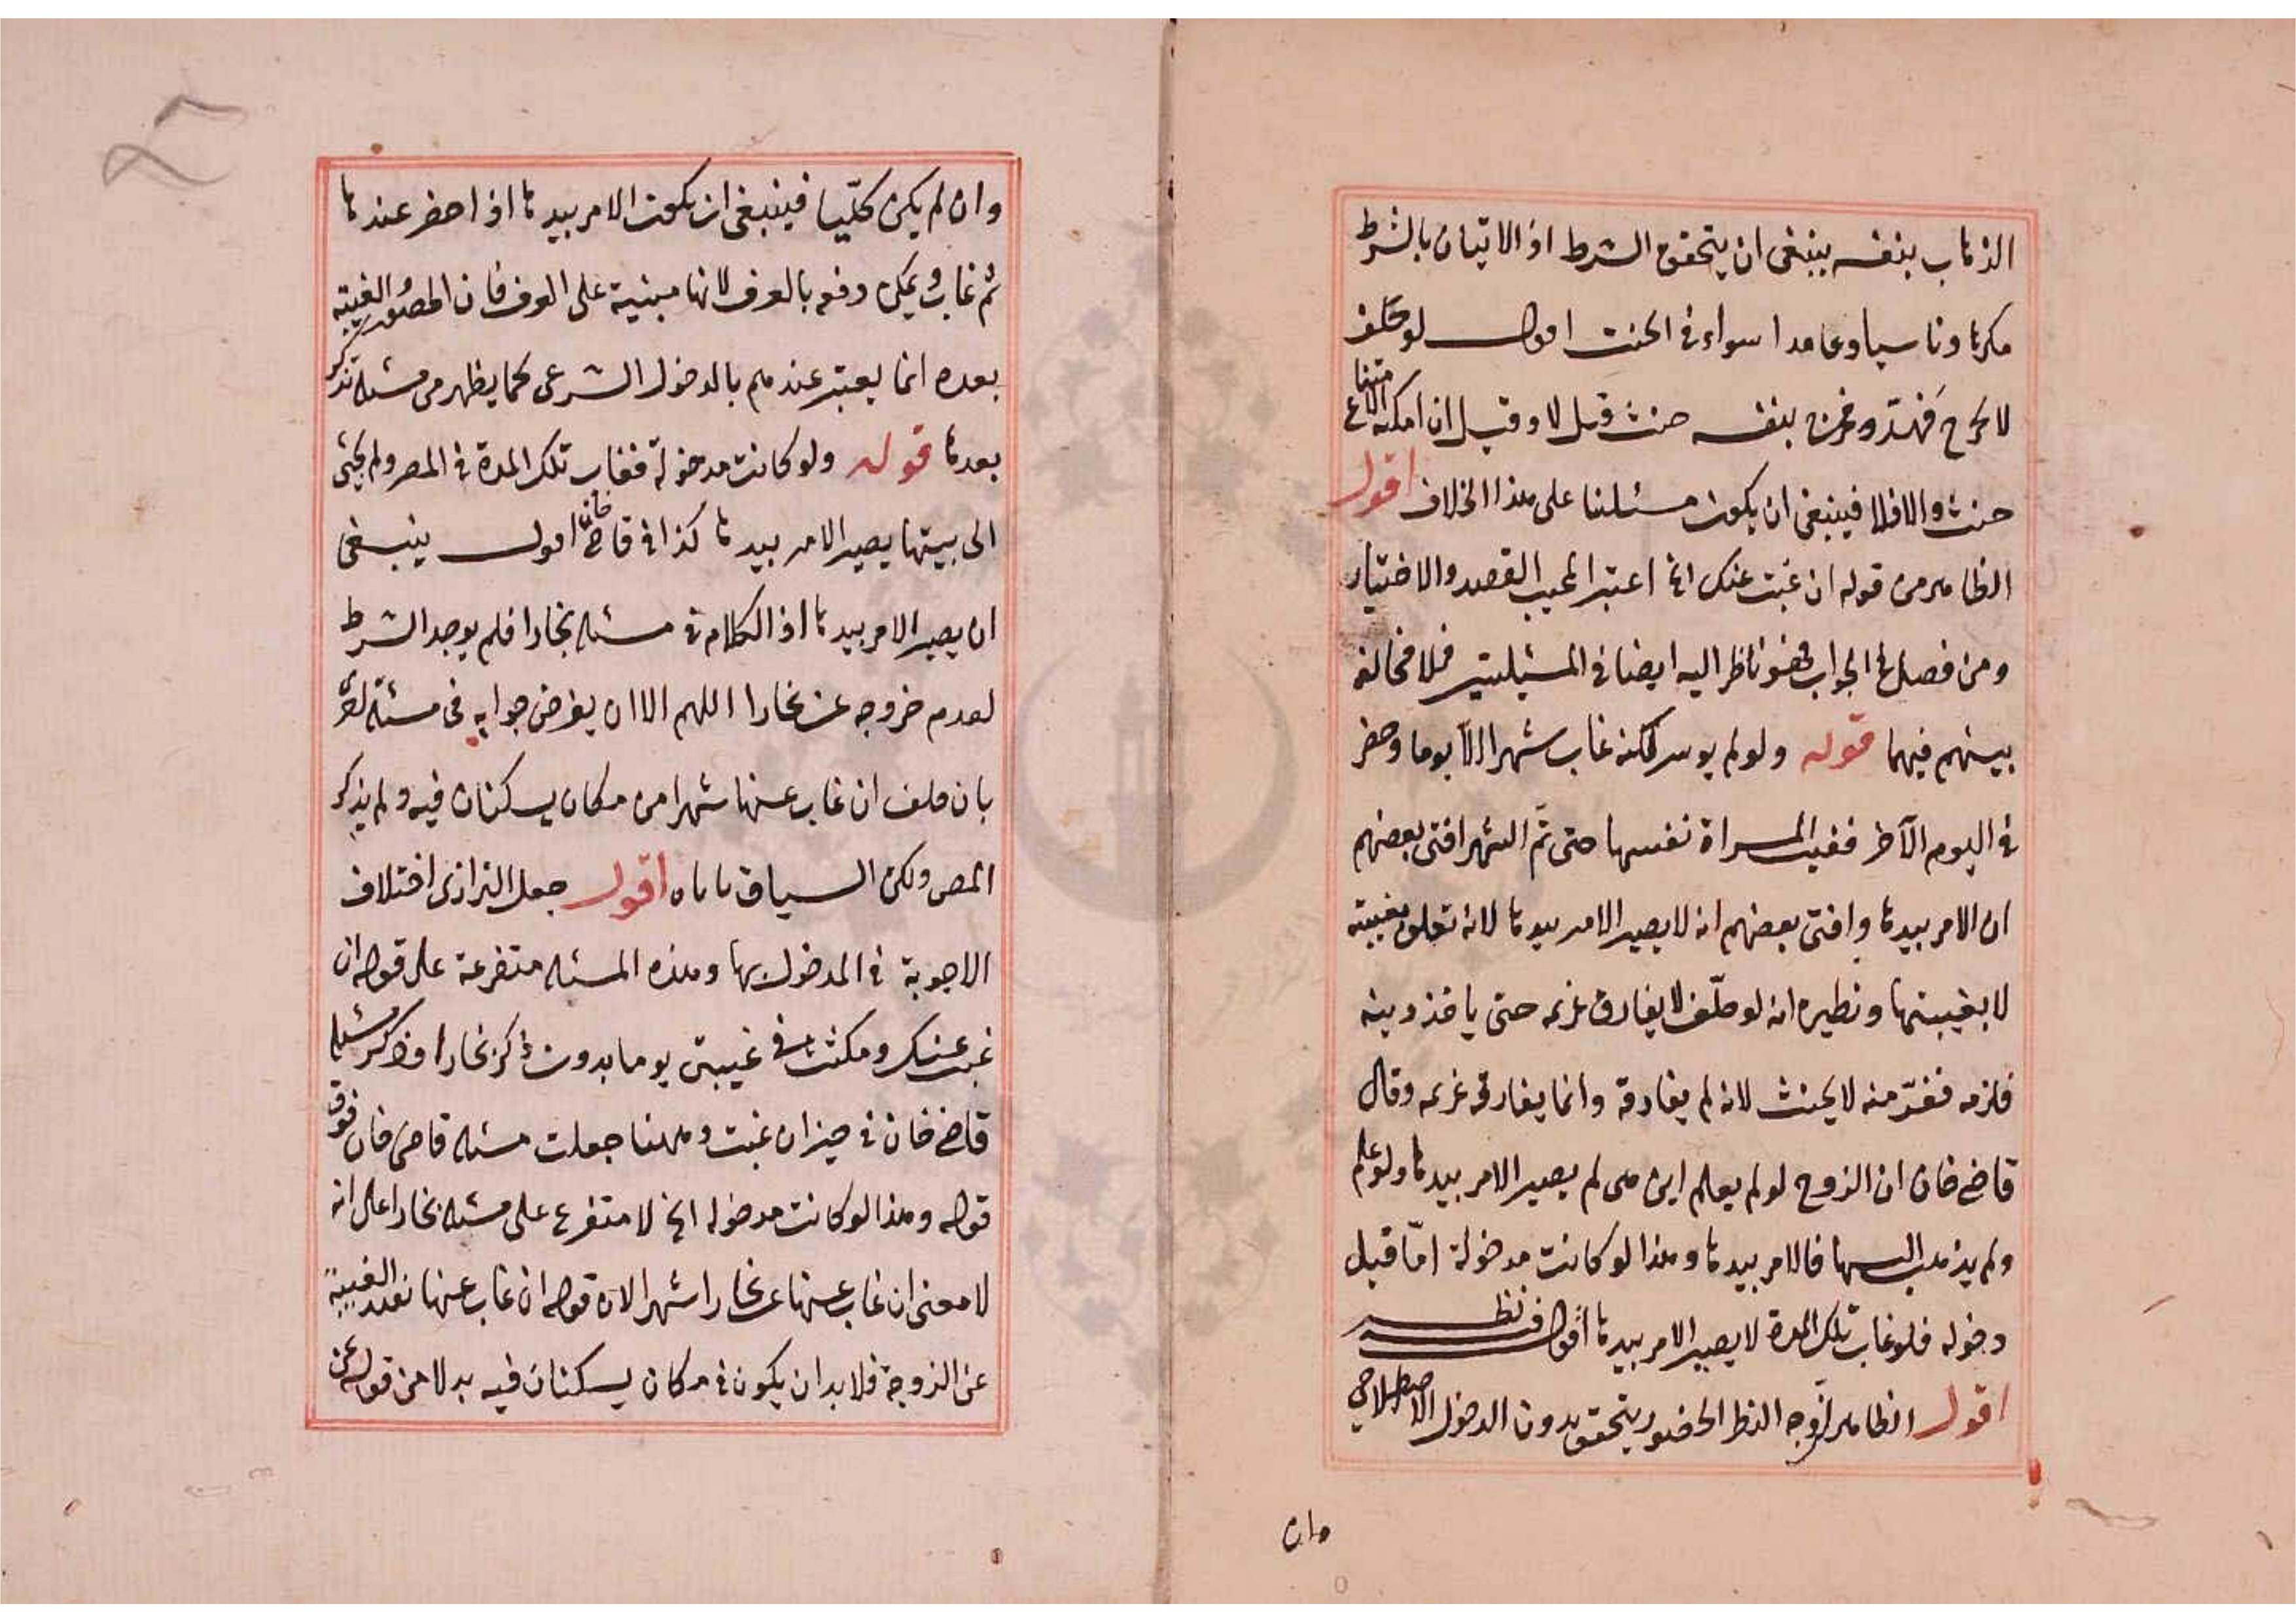 الذهاب بنفسه ينبغى ان يتحقق الشرط اذ الاتيان بالشرط
مكرها وناسيا وعامدا سواء فى الحنث اقول لو حلف
لا يخرج فهدد وخرج بنفسه حنث وقيل لا وقيل ان امكنه الامتناع
حنث والا فلا فينبغى ان يكون مسئلتنا على هذا الخلاف اقول
الظاهر من قوله ان غبت عنك انما اعتبر المجيب القصد والاختيار
ومن فصل فى الجواب فهو ناظر اليه ايضا فى المسئلتين فلا مخالفة
بينهم فيهما قوله ولو لم يوسر لكنه غاب شهرا الا يوما وحضر
فى اليوم الآخر فغيبت المراة نفسها حتى تم الشهر افتى بعضهم
ان الامر بيدها وافتى بعضهم انه لا يصير الامر بيدها لانه تعلق بغيبته
لا بغيبتها ونظيره انه لو حلف لا يفارق غريمه حتى ياخذ دينه
فلزمه ففر منه لا يحنث لانه لم يفارقه وانما يفارقه غريمه وقال
قاضى خان ان الزوج لو لم يعلم اين هى لم يصير الامر بيدها ولو علم
ولم يذهب اليها فالامر بيدها وهذا لو كانت مدخولة اما قبل
دخوله فلو غاب تلك المدة لا يصير الامر بيدها اقول فيه نظر
اقول الظاهر ان وجه النظر الحضور يتحقق بدون الدخول الاصطلاحى
وان
وان لم يكن كليا فينبغى ان يكون الامر بيدها اذا حضر عندها
ثم غاب ويمكن دفعه بالعرف لانها مبنية على العرف فان الحضور والغيبة
بعده انما يعتبر عندهم بالدخول الشرعى كما يظهر من مسئلة تذكر
بعدها قوله ولو كانت مدخولة فغاب تلك المدة فى المصر ولم يجئ
الى بيتها يصير الامر بيدها كذا فى قاضى خان اقول ينبغى
ان يصير الامر بيدها اذ الكلام فى مسئلة بخارا فلم يوجد الشرط
لعدم خروجه عن بخارا اللهم الا ان يفرض جوابه فى مسئلة اخرى
بان حلف ان غاب عنها شهرا من مكان يسكنان فيه ولم يذكر
المصر ولكن السياق ياباه اقول جعل البزازى اختلاف
الاجوبة فى المدخول بها وهذه المسئلة متفرعة على قوله ان
غبت عنك ومكثت فى غيبتى يوما بدون ذكر بخارا وذكر مسئلة
قاضى خان فى حيز ان غبت وههنا جعلت مسئلة قاضى خان فوق
قوله وهذا لو كانت مدخوله الخ لا متفرع على مسئلة بخارا على انه
لا معنى ان غاب عنها عن بخارا شهرا لان قوله ان غاب عنها الغيبة
عن الزوجة فلا بد ان يكون فى مكان يسكنان فيه بدلا من قوله عن